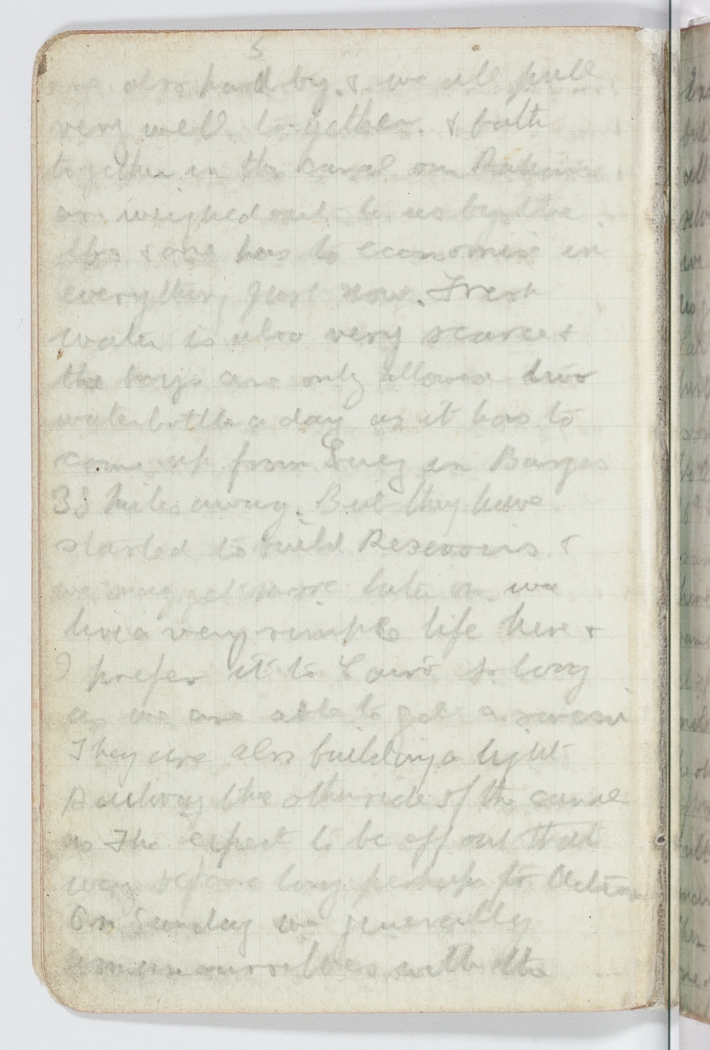 5
are also hard by, & we all pull
very well to-gether. & bath
together in the canal our Rations
are weighed out to us by the
lbs & one has to economise in
everything just now. Fresh
water is also very scarce &
the boys are only allowed two
waterbottle a day as it has to
come up from Suez in Barges
33 Miles away. But they have
started to build Reservoirs. &
we may get more later on. we
live a very simple life here &
I prefer it to Cairo so long
as we are able to get a swim
They are also building a light
Railway the other side of the canal
as The expect to be off out that
way before long perhaps for Action
On Sunday we generally
ourselves with the